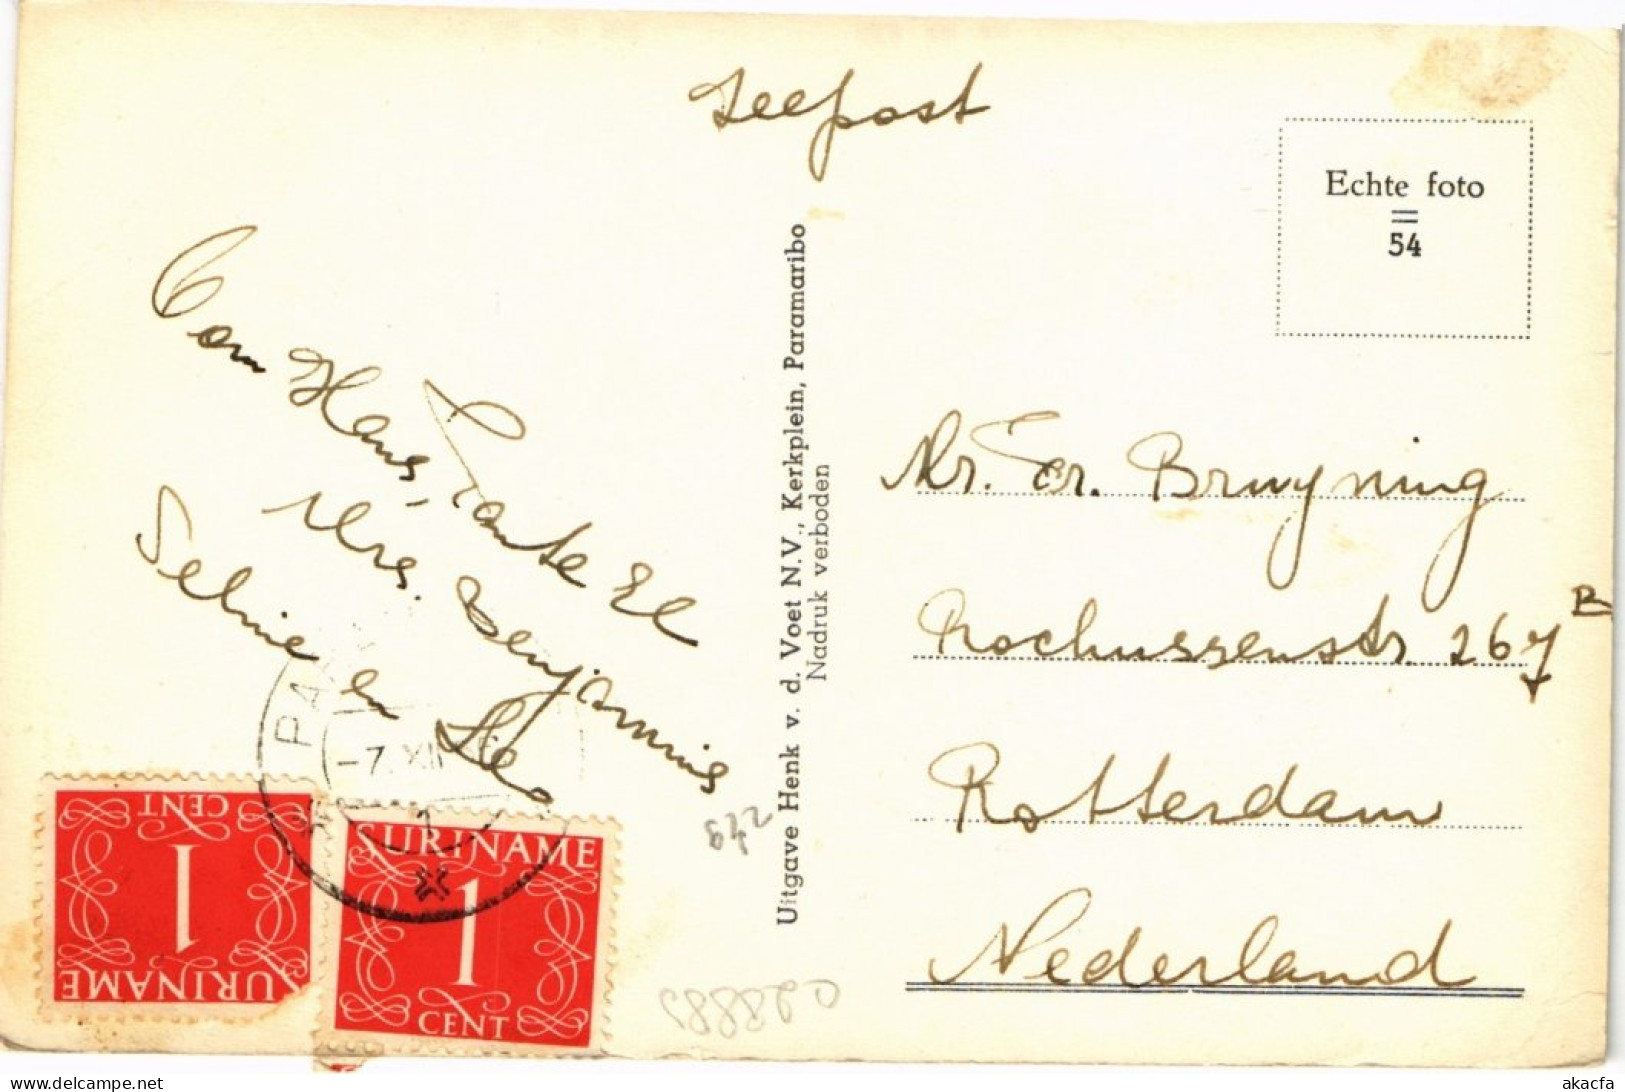 Zeepost
Echte foto
54
Oom Hans, Tante El
Mrs. Benjamins
Seline en Leo
Uitgave Henk v. d. Voet N.V., Kerkplein, Paramaribo
Nadruk verboden
Mr. Er. Bruyning
Rochussenstr. 267 B
Rotterdam
Nederland
PA
-7.XII
CENT
1
SURINAME
SURINAME
1
CENT
642
C28885
akacfa
delcampe.net